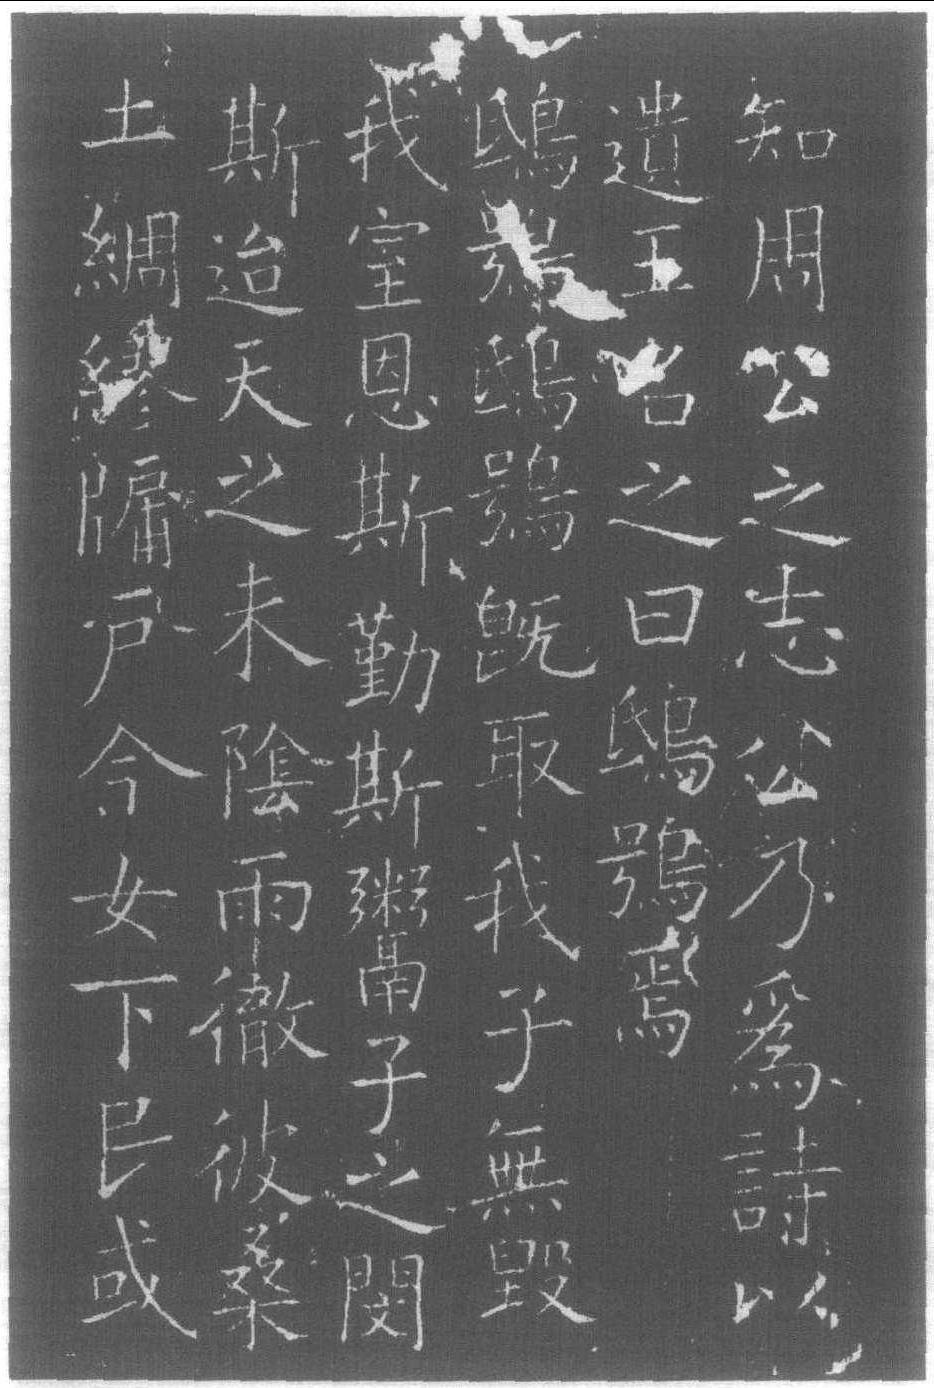 知周公之志公乃爲詩以
遺王名之曰鴟鴞焉
鴟鴞鴟鴞既取我子無毀
我室恩斯勤斯鬻子之閔
斯迨天之未陰雨徹彼桑
土綢繆牖戶今女下民或